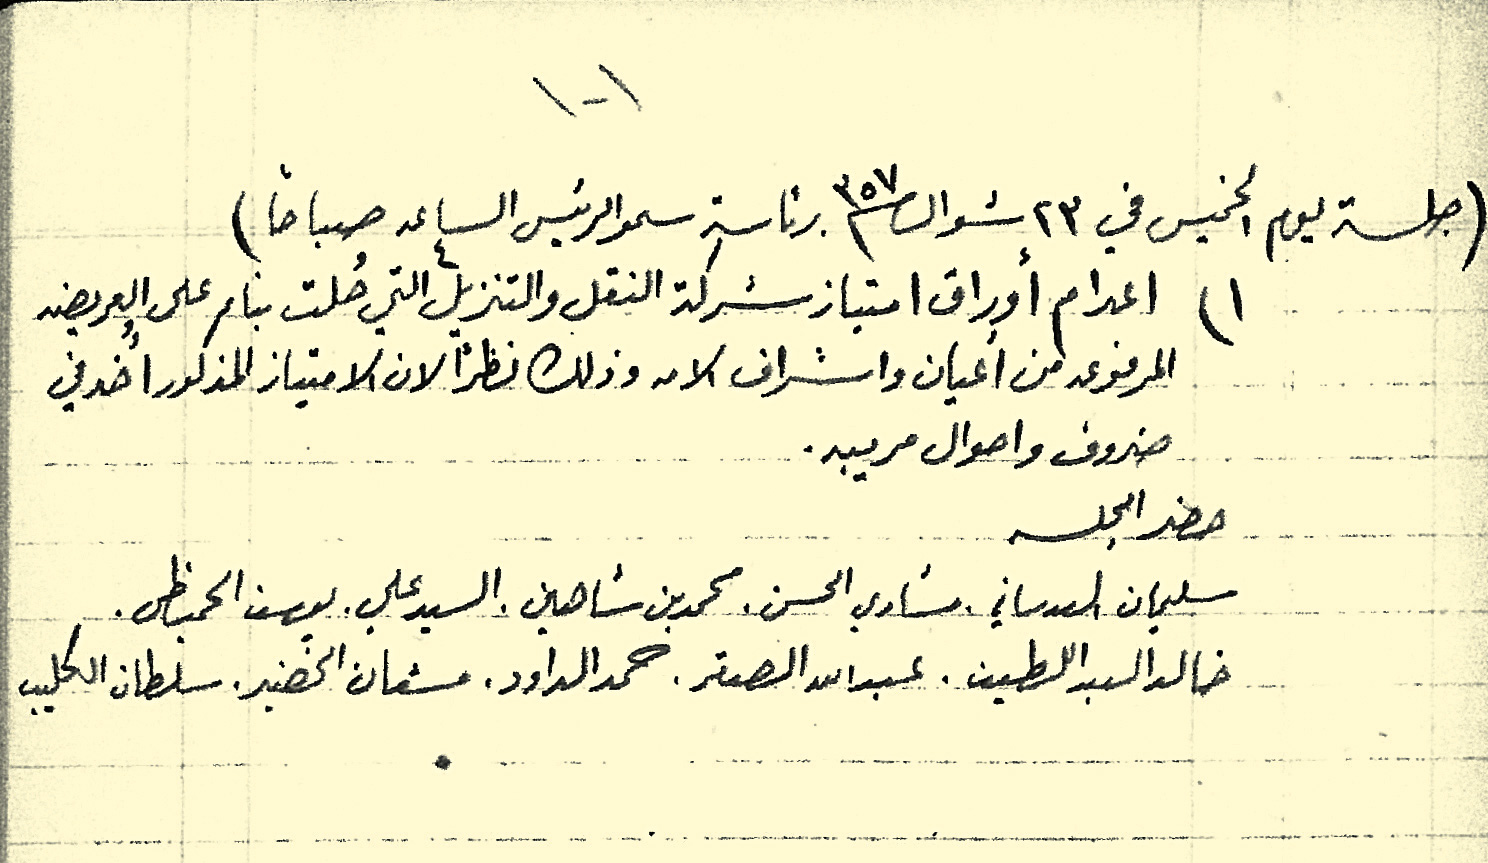 ١-١
(جلسة يوم الخميس في ٢٣ شوال ٣٥٧ برئاسة سمو الرئيس الساعه ٤ صباحًا)
١) اعدام أوراق امتياز شركة النقل والتنزيل التي حُلت بناء على العريضه
المرفوعه من أعيان واشراف الامه وذلك نظرًا لان الامتياز المذكور اُخذ في
ضروف واحوال مريبه.
حضر الجلسه
سليمان العدساني. مشاري الحسن. محمد بن شاهين. السيد علي. يوسف الحميضي.
خالد العبد اللطيف. عبدالله الصقر. حمد الداود. مشعان الخضير. سلطان الكليب